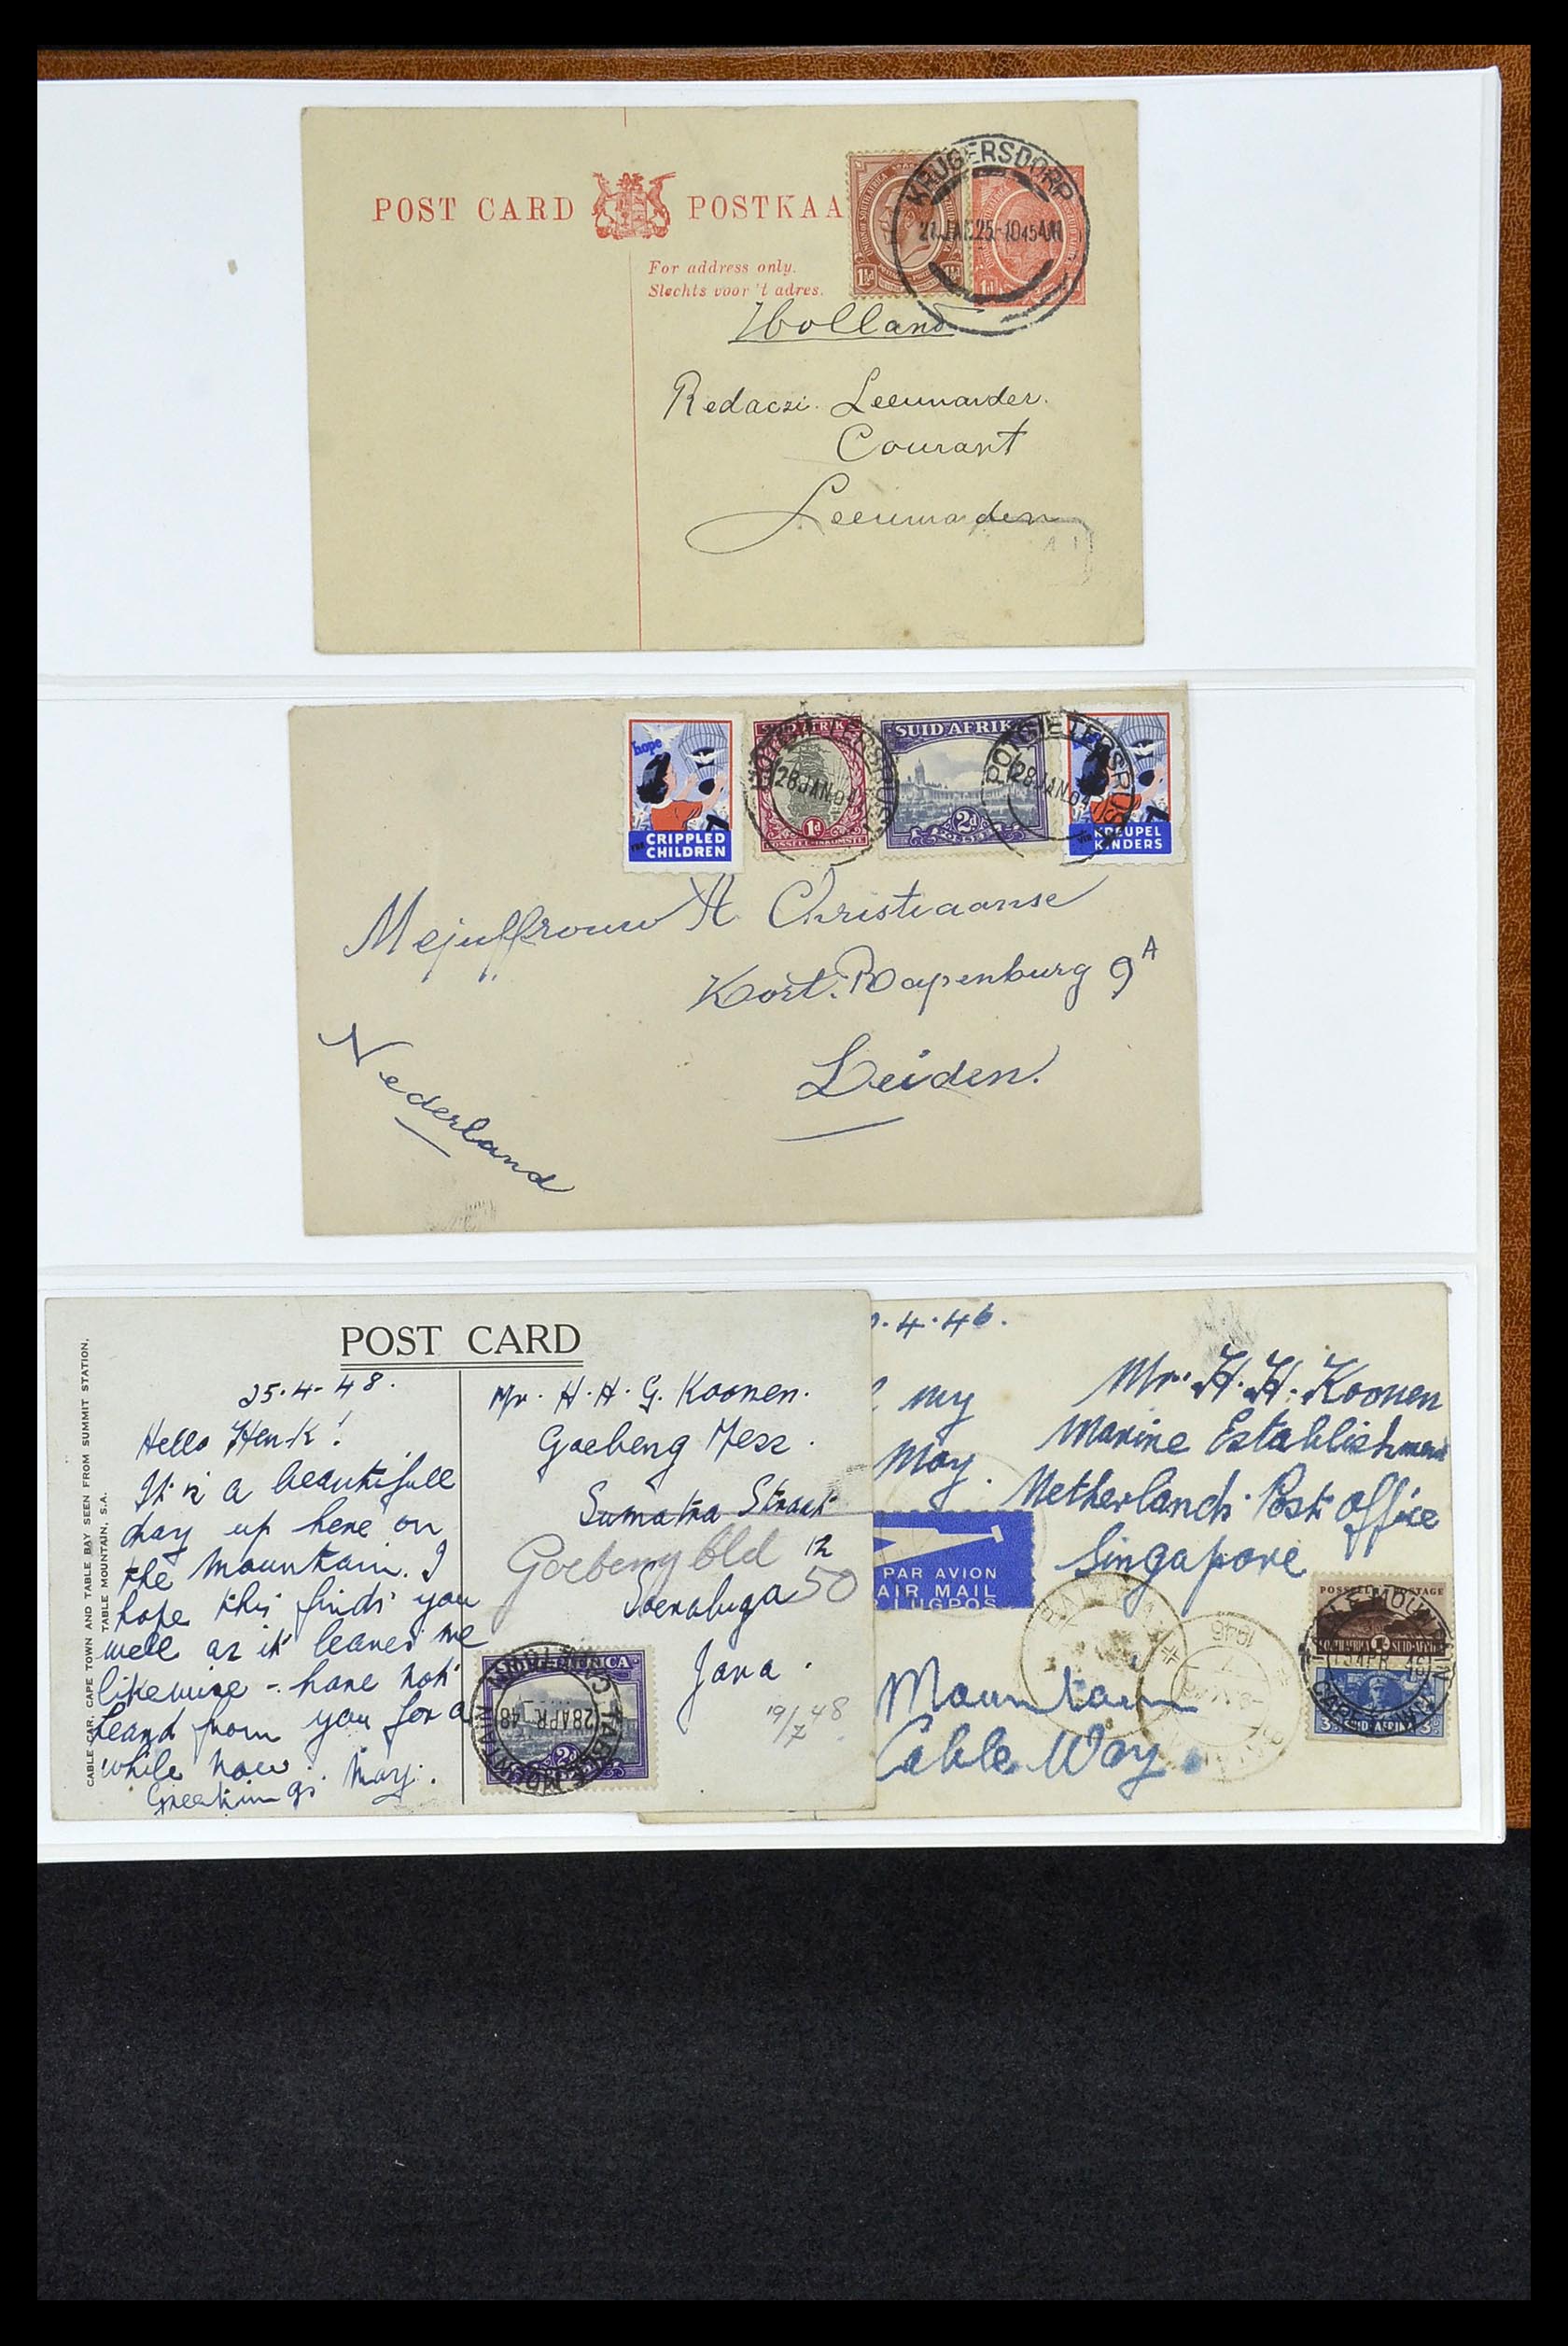 POST CARD POSTKAA
For address only.
Slechts voor 't adres.
KRUGERSDORP
21 JAN 25-1045AM
1½d 1½d
1d
Holland
Redaczi. Leeuwarder.
Courant
Leeuwaden
hope
CRIPPLED
CHILDREN
1d
POSSEEL-INKOMSTE
28 JAN 04
SUID AFRIKA
2d
POTGIETERSRUS
28 JAN 04
VIR KREUPEL
KINDERS
Mejuffrouw A Christiaanse
Kort. Rapenburg 9A
Leiden.
Nederland
CABLE CAR, CAPE TOWN AND TABLE BAY SEEN FROM SUMMIT STATION,
TABLE MOUNTAIN, S.A.
POST CARD
25.4-48.
Hello Henk!
It is a beautifull
day up here on
the Mountain. I
hope this finds you
well as it leaves me
likewise - have not
heard from you for a
while now.
Greetings May.
Mr. H.H.G. Koonen.
Goebeng Mess.
Sumatra Straat
12
Goebeng bld 50
Soerabaya
Java.
19/7 48
28 APR 48
2d
.4.46.
my
May.
PAR AVION
AIR MAIL
LUGPOS
Mr. H.H. Koonen
Marine Establishment
Netherlands Post Office
Singapore
POSTAGE
SUID-AFRIKA
3d 3d
1946
Mountain
Cable Way.